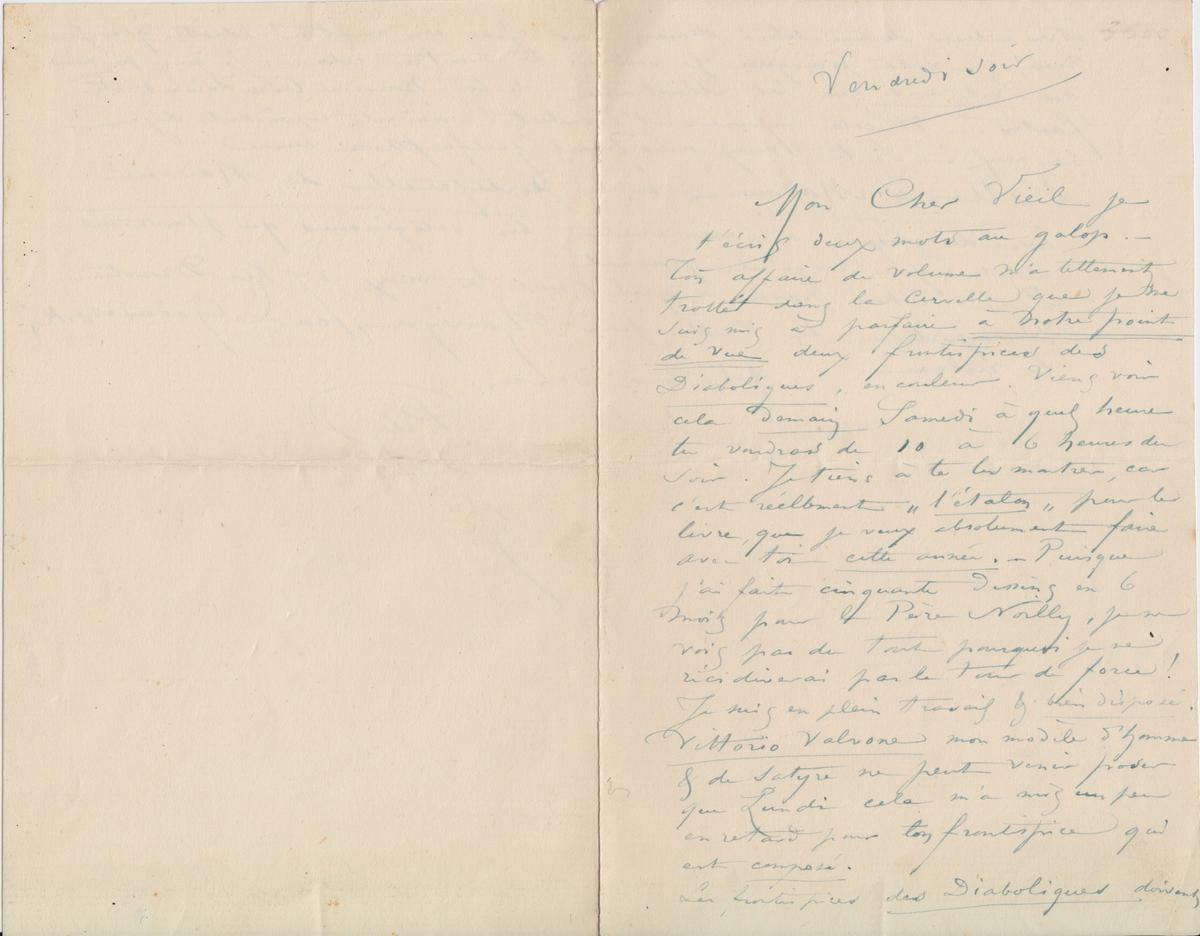 3500
Vendredi soir
Mon Cher Vieil je
t'écris deux mots au galop. —
Ton affaire de volume m'a tellement
trotté dans la cervelle que je me
suis mis à parfaire à notre point
de vue deux frontispices des
Diaboliques, en couleur. Viens voir
cela demain Samedi à quel heure
tu voudras de 10 à 6 heures du
soir. Je tiens à te les montrer, car
c'est réellement „ l'étalon „ pour le
livre, que je veux absolument faire
avec toi cette année. — Puisque
j'ai fait cinquante dessins en 6
mois pour le Père Noilly, je ne
vois pas du tout pourquoi je ne
récidiverai pas le tour de force !
Je suis en plein travail & bien disposé.
Vittorio Valvone mon modèle d'homme
& de satyre ne peut venir poser
que Lundi cela m'a mis un peu
en retard pour ton frontispice qui
est composé.
Les frontispices des Diaboliques doivent